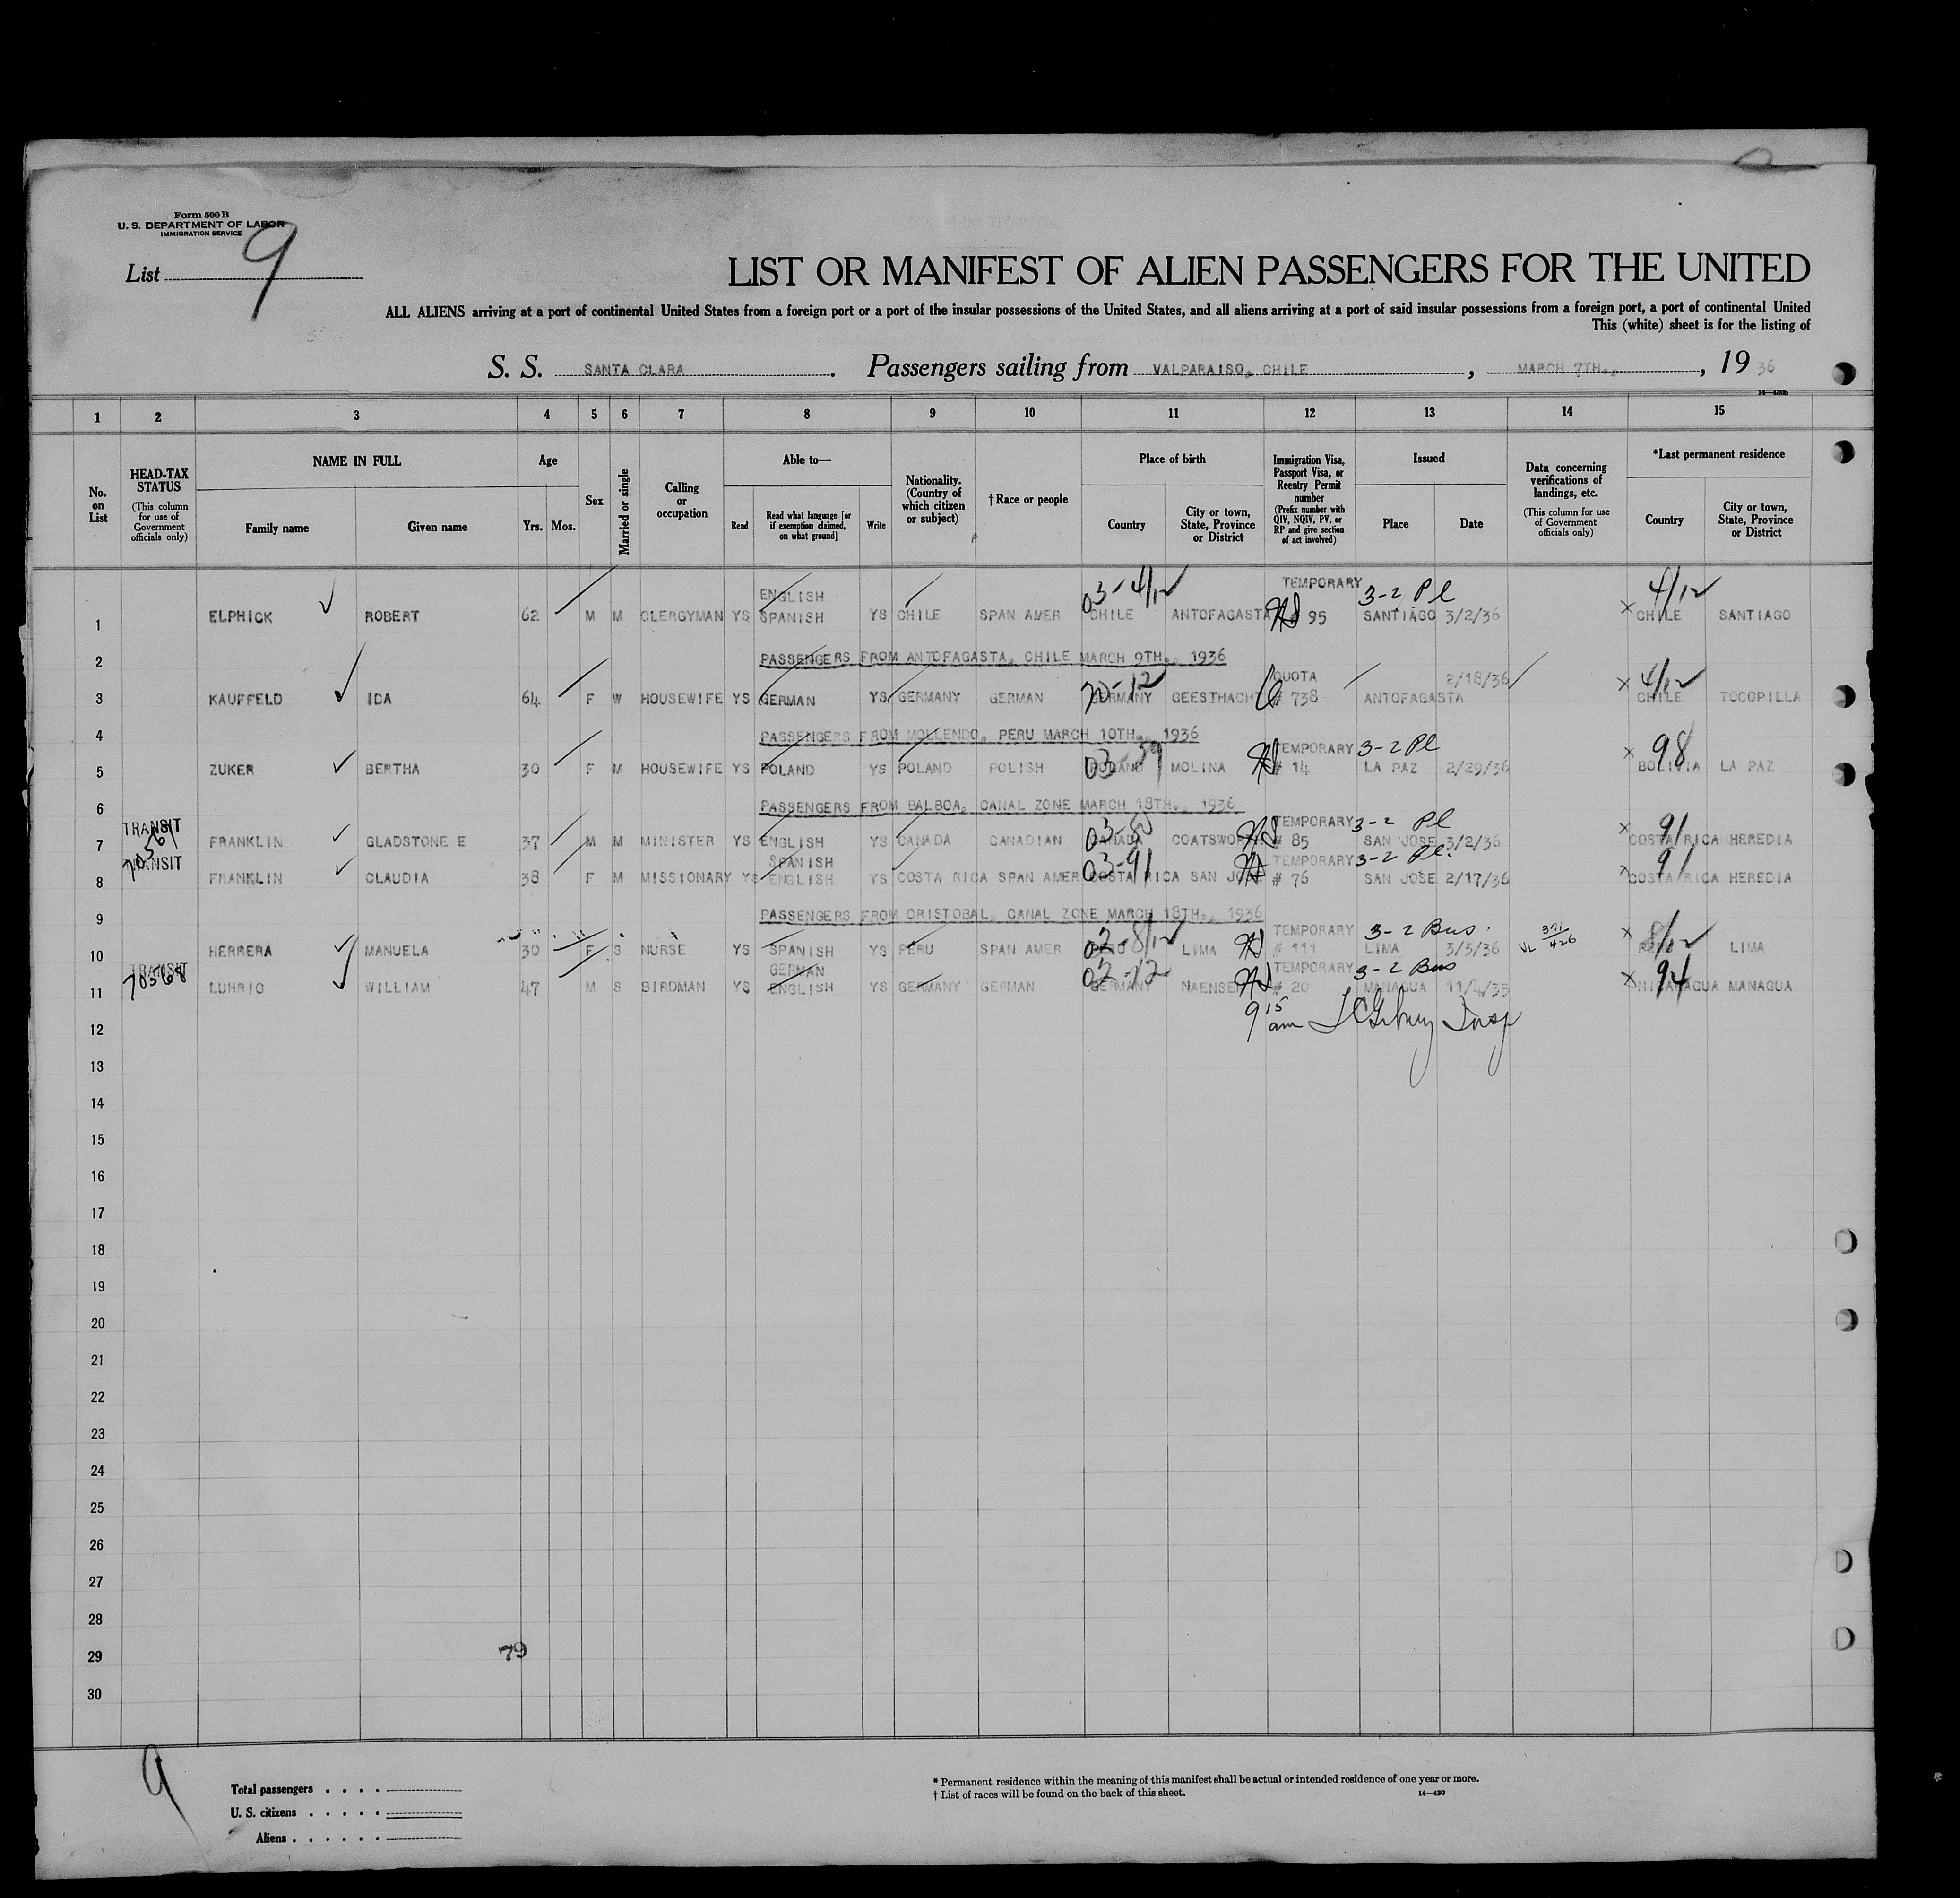 Form 500 B
U. S. DEPARTMENT OF LABOR
IMMIGRATION SERVICE
List 9
LIST OR MANIFEST OF ALIEN PASSENGERS FOR THE UNITED
ALL ALIENS arriving at a port of continental United States from a foreign port or a port of the insular possessions of the United States, and all aliens arriving at a port of said insular possessions from a foreign port, a port of continental United
This (white) sheet is for the listing of
S. S. SANTA CLARA . Passengers sailing from VALPARAISO, CHILE , MARCH 7TH., , 19 36
14—430b
1 2 3 4 5 6 7 8 9 10 11 12 13 14 15
No. on List
HEAD-TAX STATUS (This column for use of Government officials only)
NAME IN FULL Family name Given name
Age Yrs. Mos.
Sex
Married or single
Calling or occupation
Able to— Read Read what language [or if exemption claimed, on what ground] Write
Nationality. (Country of which citizen or subject)
† Race or people
Place of birth Country City or town, State, Province or District
Immigration Visa, Passport Visa, or Reentry Permit number (Prefix number with QIV, NQIV, PV, or RP and give section of act involved)
Issued Place Date
Data concerning verifications of landings, etc. (This column for use of Government officials only)
*Last permanent residence Country City or town, State, Province or District
ENGLISH 03-4/12 TEMPORARY 3-2 Pl 4/12
1 ELPHICK ROBERT 62 M M CLERGYMAN YS SPANISH YS CHILE SPAN AMER CHILE ANTOFAGASTA 95 SANTIAGO 3/2/36 X CHILE SANTIAGO
2 PASSENGERS FROM ANTOFAGASTA, CHILE MARCH 9TH., 1936
70-12 QUOTA 2/18/36 4/12
3 KAUFFELD IDA 64 F W HOUSEWIFE YS GERMAN YS GERMANY GERMAN GERMANY GEESTHACHT # 738 ANTOFAGASTA X CHILE TOCOPILLA
4 PASSENGERS FROM MOLLENDO, PERU MARCH 10TH., 1936
03-59 TEMPORARY 3-2 Pl 98
5 ZUKER BERTHA 30 F M HOUSEWIFE YS POLAND YS POLAND POLISH POLAND MOLINA # 14 LA PAZ 2/29/36 X BOLIVIA LA PAZ
6 PASSENGERS FROM BALBOA, CANAL ZONE MARCH 18TH., 1936
TRANSIT TEMPORARY 3-2 Pl 91
7 FRANKLIN GLADSTONE E 37 M M MINISTER YS ENGLISH YS CANADA CANADIAN CANADA COATSWORTH # 85 SAN JOSE 3/2/36 X COSTA RICA HEREDIA
TRANSIT SPANISH 03-91 TEMPORARY 3-2 Pl. 91
8 FRANKLIN CLAUDIA 38 F M MISSIONARY YS ENGLISH YS COSTA RICA SPAN AMER COSTA RICA SAN JOSE # 76 SAN JOSE 2/17/36 X COSTA RICA HEREDIA
9 PASSENGERS FROM CRISTOBAL, CANAL ZONE MARCH 18TH., 1936
TEMPORARY 3-2 Bus. 8/12
10 HERRERA MANUELA 30 F S NURSE YS SPANISH YS PERU SPAN AMER PERU LIMA # 111 LIMA 3/3/36 VL 371/426 X PERU LIMA
TRANSIT 70568 GERMAN 02-12 TEMPORARY 3-2 Bus 94
11 LUHRIG WILLIAM 47 M S BIRDMAN YS ENGLISH YS GERMANY GERMAN GERMANY NAENSEN # 20 MANAGUA 11/4/35 X NICARAGUA MANAGUA
12 9 15 am Insp
13
14
15
16
17
18
19
20
21
22
23
24
25
26
27
28
29 79
30
9
Total passengers . . . .
U. S. citizens . . . . .
Aliens . . . . . .
* Permanent residence within the meaning of this manifest shall be actual or intended residence of one year or more.
† List of races will be found on the back of this sheet. 14—430